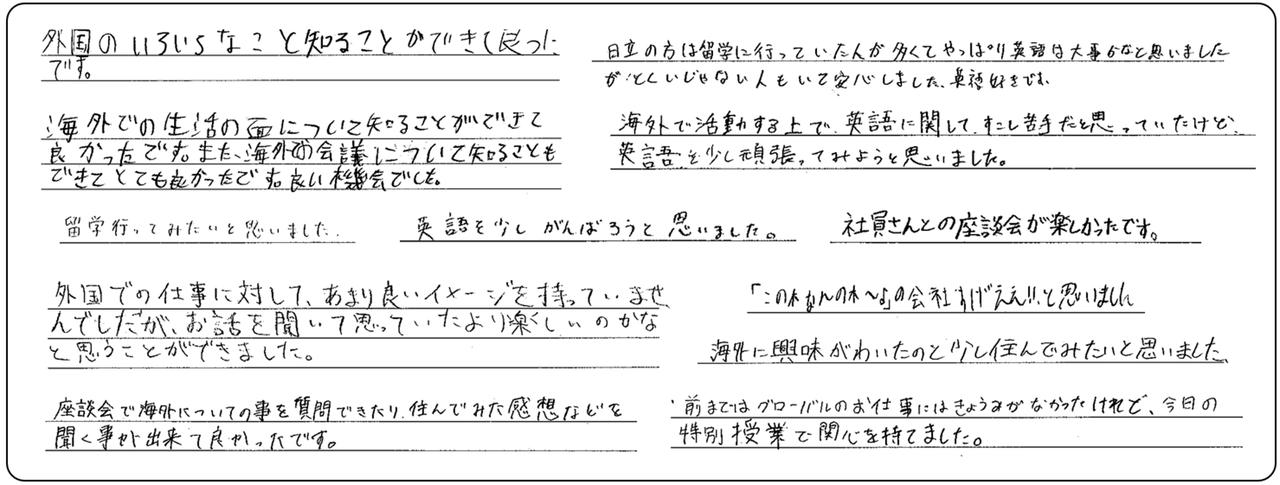 外国のいろいろなこと知ることができて良った
です。
日立の方は留学に行っていた人が多くてやっぱり英語は大事かなと思いました
が、とくいじゃない人もいて安心しました。英語好きです。
海外での生活の面について知ることができて
良かったです。また、海外の会議について知ることも
できてとても良かったです。良い機会でした。
海外で活動する上で、英語に関して、すこし苦手だと思っていたけど、
英語を少し頑張ってみようと思いました。
留学行ってみたいと思いました。
英語を少しがんばろうと思いました。
社員さんとの座談会が楽しかったです。
外国での仕事に対して、あまり良いイメージを持っていませ
んでしたが、お話を聞いて思っていたより楽しいのかな
と思うことができました。
「この木なんの木〜♪」の会社すげえぇ!!、と思いました
海外に興味がわいたのと少し住んでみたいと思いました。
座談会で海外についての事を質問できたり、住んでみた感想などを
聞く事が出来て良かったです。
前まではグローバルのお仕事にはきょうみがなかったけれど、今日の
特別授業で関心を持てました。